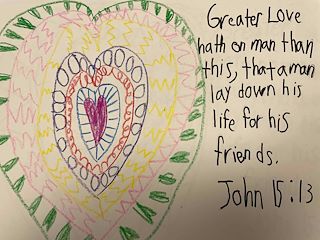 Greater Love
hath on man than
this, that a man
lay down his
life for his
friends.
John 15:13